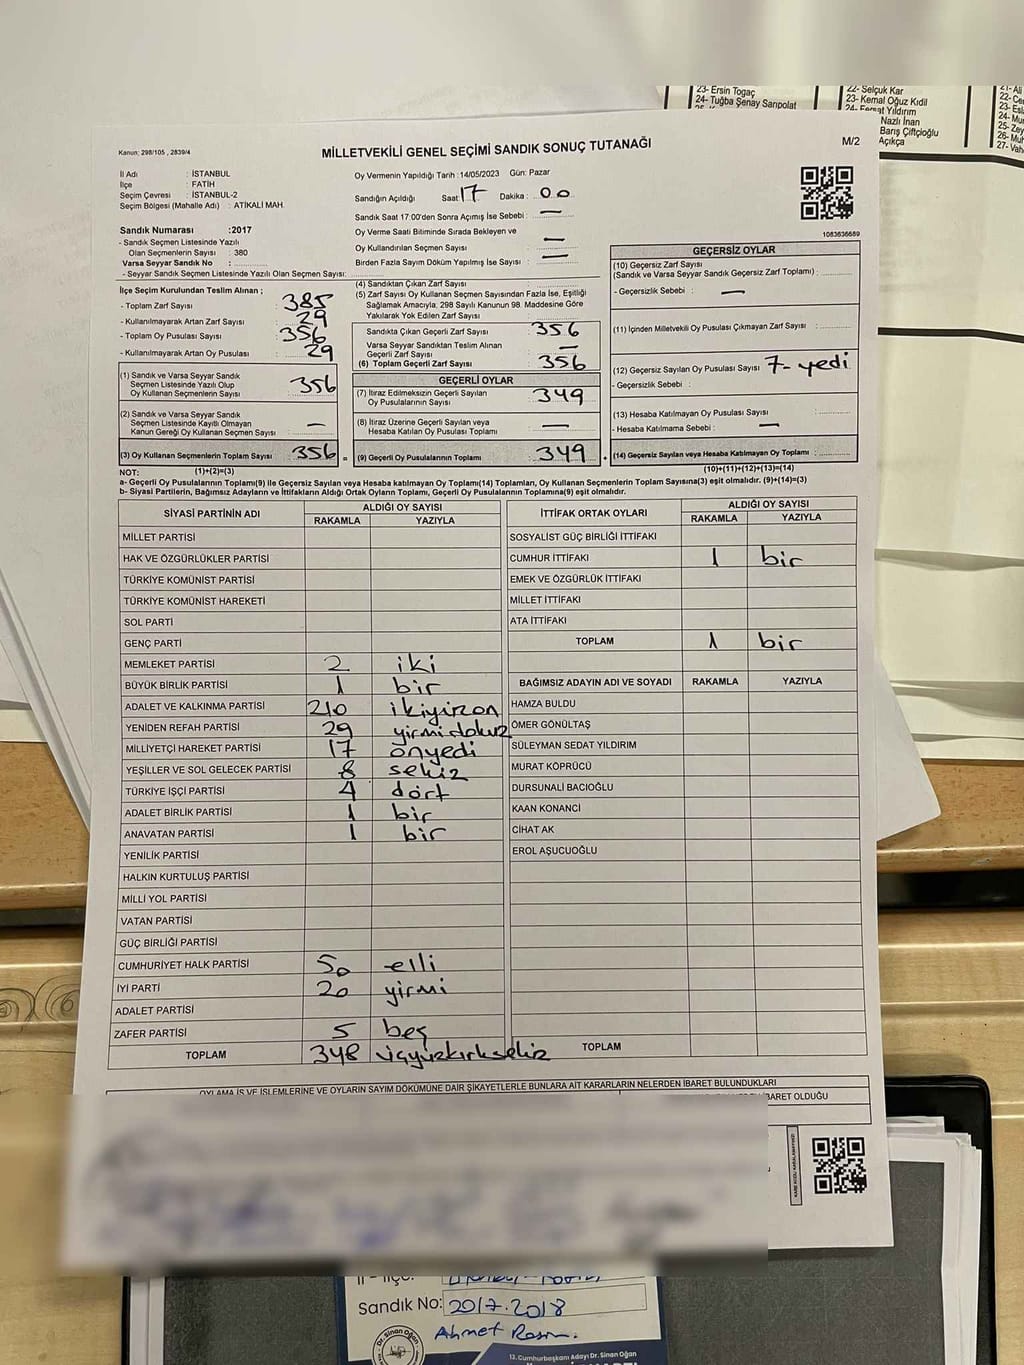 23- Ersin Togaç
24- Tuğba Şenay Sarıpolat
22- Selçuk Kar
23- Kemal Oğuz Kıdil
Yıldırım
Nazlı İnan
Barış Çiftçioğlu
Açıkça
Kanun: 298/105 , 2839/4
MİLLETVEKİLİ GENEL SEÇİMİ SANDIK SONUÇ TUTANAĞI
M/2
İl Adı : İSTANBUL
İlçe : FATİH
Seçim Çevresi : İSTANBUL-2
Seçim Bölgesi (Mahalle Adı) : ATİKALİ MAH.
Oy Vermenin Yapıldığı Tarih :14/05/2023 Gün: Pazar
Sandığın Açıldığı Saat: 17 Dakika : 00
Sandık Saat 17:00'den Sonra Açılmış İse Sebebi : —
Oy Verme Saati Bitiminde Sırada Bekleyen ve
Oy Kullandırılan Seçmen Sayısı : —
Birden Fazla Sayım Döküm Yapılmış İse Sayısı : —
1083636689
Sandık Numarası :2017
- Sandık Seçmen Listesinde Yazılı
Olan Seçmenlerin Sayısı : 380
Varsa Seyyar Sandık No :
- Seyyar Sandık Seçmen Listesinde Yazılı Olan Seçmen Sayısı:
İlçe Seçim Kurulundan Teslim Alınan ;
- Toplam Zarf Sayısı : 385
- Kullanılmayarak Artan Zarf Sayısı : 29
- Toplam Oy Pusulası Sayısı : 356
- Kullanılmayarak Artan Oy Pusulası : 29
(1) Sandık ve Varsa Seyyar Sandık
Seçmen Listesinde Yazılı Olup
Oy Kullanan Seçmenlerin Sayısı : 356
(2) Sandık ve Varsa Seyyar Sandık
Seçmen Listesinde Kayıtlı Olmayan
Kanun Gereği Oy Kullanan Seçmen Sayısı : —
(3) Oy Kullanan Seçmenlerin Toplam Sayısı : 356 =
(4) Sandıktan Çıkan Zarf Sayısı :
(5) Zarf Sayısı Oy Kullanan Seçmen Sayısından Fazla İse, Eşitliği
Sağlamak Amacıyla, 298 Sayılı Kanunun 98. Maddesine Göre
Yakılarak Yok Edilen Zarf Sayısı :
Sandıkta Çıkan Geçerli Zarf Sayısı : 356
Varsa Seyyar Sandıktan Teslim Alınan
Geçerli Zarf Sayısı : —
(6) Toplam Geçerli Zarf Sayısı : 356
GEÇERLİ OYLAR
(7) İtiraz Edilmeksizin Geçerli Sayılan
Oy Pusulalarının Sayısı : 349
(8) İtiraz Üzerine Geçerli Sayılan veya
Hesaba Katılan Oy Pusulası Toplamı : —
(9) Geçerli Oy Pusulalarının Toplamı : 349 +
GEÇERSİZ OYLAR
(10) Geçersiz Zarf Sayısı
(Sandık ve Varsa Seyyar Sandık Geçersiz Zarf Toplamı) :
- Geçersizlik Sebebi : —
(11) İçinden Milletvekili Oy Pusulası Çıkmayan Zarf Sayısı :
(12) Geçersiz Sayılan Oy Pusulası Sayısı : 7- yedi
- Geçersizlik Sebebi :
(13) Hesaba Katılmayan Oy Pusulası Sayısı :
- Hesaba Katılmama Sebebi : —
(14) Geçersiz Sayılan veya Hesaba Katılmayan Oy Toplamı :
NOT: (1)+(2)=(3) (10)+(11)+(12)+(13)=(14)
a- Geçerli Oy Pusulalarının Toplamı(9) ile Geçersiz Sayılan veya Hesaba Katılmayan Oy Toplamı(14) Toplamları, Oy Kullanan Seçmenlerin Toplam Sayısına(3) eşit olmalıdır. (9)+(14)=(3)
b- Siyasi Partilerin, Bağımsız Adayların ve İttifakların Aldığı Ortak Oyların Toplamı, Geçerli Oy Pusulalarının Toplamına(9) eşit olmalıdır.
SİYASİ PARTİNİN ADI ALDIĞI OY SAYISI
RAKAMLA YAZIYLA
MİLLET PARTİSİ
HAK VE ÖZGÜRLÜKLER PARTİSİ
TÜRKİYE KOMÜNİST PARTİSİ
TÜRKİYE KOMÜNİST HAREKETİ
SOL PARTİ
GENÇ PARTİ
MEMLEKET PARTİSİ 2 iki
BÜYÜK BİRLİK PARTİSİ 1 bir
ADALET VE KALKINMA PARTİSİ 210 ikiyüzon
YENİDEN REFAH PARTİSİ 29 yirmidokuz
MİLLİYETÇİ HAREKET PARTİSİ 17 onyedi
YEŞİLLER VE SOL GELECEK PARTİSİ 8 sekiz
TÜRKİYE İŞÇİ PARTİSİ 4 dört
ADALET BİRLİK PARTİSİ 1 bir
ANAVATAN PARTİSİ 1 bir
YENİLİK PARTİSİ
HALKIN KURTULUŞ PARTİSİ
MİLLİ YOL PARTİSİ
VATAN PARTİSİ
GÜÇ BİRLİĞİ PARTİSİ
CUMHURİYET HALK PARTİSİ 50 elli
İYİ PARTİ 20 yirmi
ADALET PARTİSİ
ZAFER PARTİSİ 5 beş
TOPLAM 348 üçyüzkırksekiz
İTTİFAK ORTAK OYLARI ALDIĞI OY SAYISI
RAKAMLA YAZIYLA
SOSYALİST GÜÇ BİRLİĞİ İTTİFAKI
CUMHUR İTTİFAKI 1 bir
EMEK VE ÖZGÜRLÜK İTTİFAKI
MİLLET İTTİFAKI
ATA İTTİFAKI
TOPLAM 1 bir
BAĞIMSIZ ADAYIN ADI VE SOYADI RAKAMLA YAZIYLA
HAMZA BULDU
ÖMER GÖNÜLTAŞ
SÜLEYMAN SEDAT YILDIRIM
MURAT KÖPRÜCÜ
DURSUNALİ BACIOĞLU
KAAN KONANCİ
CİHAT AK
EROL AŞUCUOĞLU
TOPLAM
OYLAMA İŞ VE İŞLEMLERİNE VE OYLARIN SAYIM DÖKÜMÜNE DAİR ŞİKAYETLERLE BUNLARA AİT KARARLARIN NELERDEN İBARET BULUNDUKLARI
İBARET OLDUĞU
İl - İlçe:
Sandık No: 2017.2018
Ahmet
Dr. Sinan Oğan
13. Cumhurbaşkanı Adayı Dr. Sinan Oğan